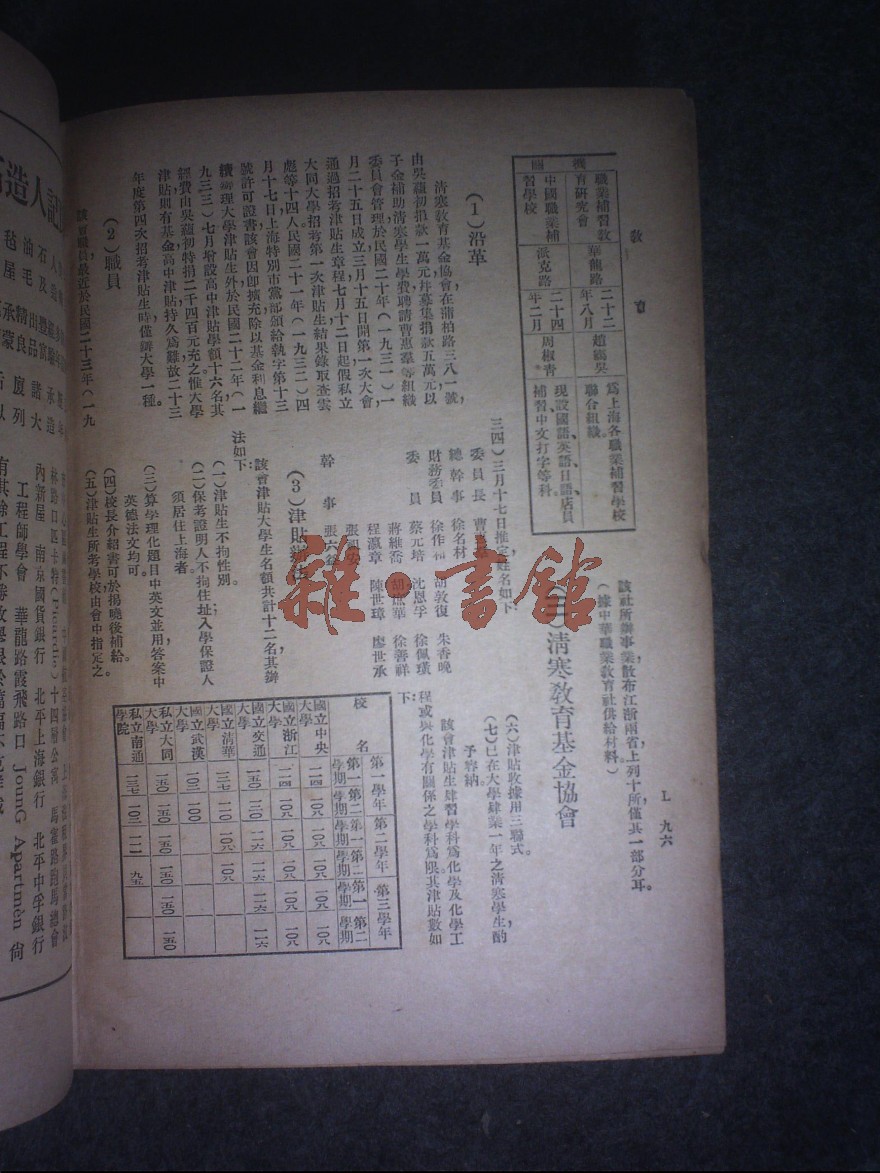 教育
L 九六
職業補習教育研究會 華龍路 二十二年八月 趙靄吳 爲上海各職業補習學校聯合組織。
中國職業補習學校 派克路 二十四年二月 周椒青 現設國語、英語、日語、店員補習、中文打字等科。
該社所辦事業,散布江浙兩省,上列十所,僅其一部分耳。
(據中華職業教育社供給材料)
清寒教育基金協會
(1)沿革
清寒教育基金協會,在蒲柏路三八一號,
由吳蘊初捐款一萬元,并募集捐款五萬元,以
子金補助清寒學生學費,聘請曹惠羣等組織
委員會管理,於民國二十年(一九三一)一
月二十五日成立,三月十五日開第一次大會,
通過招考津貼生章程,七月十二日起假私立
大同大學招考第一次津貼生,結果錄取查雲
彪等十四人,民國二十一年(一九三二)四
月十七日,上海特別市黨部頒給執字第十三
號許可證書,該會因即擴充,除以基金利息繼
續辦理大學津貼生外,於民國二十二年(一
九三三)七月增設高中津貼學額十六名,其
經費由吳蘊初特捐二千四百元充之,惟大學
津貼則有基金,高中津貼持久爲難,故二十三
年度第四次招考津貼生時,僅辦大學一種。
(2)職員
該會職員,最近於民國二十三年(一九
三四)三月十七日推定,姓名如下:
委員長 曹
總幹事 徐名材
財務委員 徐作 胡敦復 朱香晚
委員 蔡元培 沈恩孚 徐佩璜
蔣維喬 胡庶華 徐善祥
程瀛章 陳世璋 廖世承
張
幹事 張六
(3)津貼辦法
該會津貼大學生名額共計十二名,其辦
法如下:
(一)津貼生不拘性別。
(二)保考證明人不拘住址,入學保證人
須居住上海者。
(三)算學理化題目中英文並用,答案中
英德法文均可。
(四)校長介紹書可於揭曉後補給。
(五)津貼生所考學校由會中指定之。
(六)津貼收據用三聯式。
(七)已在大學肄業一年之清寒學生,酌
予容納。
該會津貼生肄習學科爲化學及化學工
程或與化學有關係之學科爲限,其津貼數如
下:
校名 第一學年 第二學年 第三學年
第一學期 第二學期 第一學期 第二學期 第一學期 第二學期
國立中央大學 一一四 一〇八 一〇八 一〇八 一〇八 一〇八
國立浙江大學 一一四 一〇八 一〇八 一〇八 一〇八 一〇八
國立交通大學 一五〇 一二〇 一二六 一一六 一二六 一一六
國立清華大學 一三七 一〇八 一〇八 一〇八
國立武漢大學 一〇二 一〇〇
私立大同大學 一五〇 一五〇 一五〇 一五〇 一五〇 一五〇
私立南通學院 一三七 一〇二 一一一 九五
雜·書館
林路口匹卡特(Picardie)十四層公寓 馬霍路跑馬總會
內新屋 南京國貨銀行 北平上海銀行 北平中孚銀行
工程師學會 華龍路霞飛路口 JounG Apartmên 尙